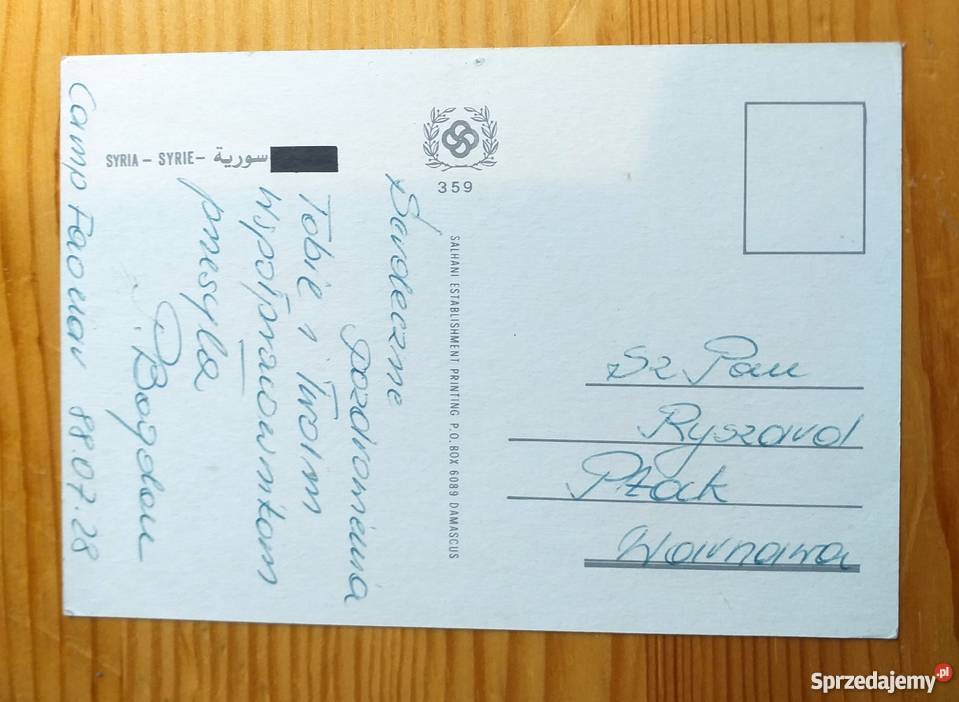 SYRIA – SYRIE – سورية
359
SALHANI ESTABLISHMENT PRINTING P.O.BOX 6089 DAMASCUS
Serdeczne
pozdrowienia
Tobie i Twoim
współpracownikom
przesyła
P. Bogdan
Camp Faouar 88.07.28
Sz Pan
Ryszard
Ptak
Warszawa
Sprzedajemy.pl